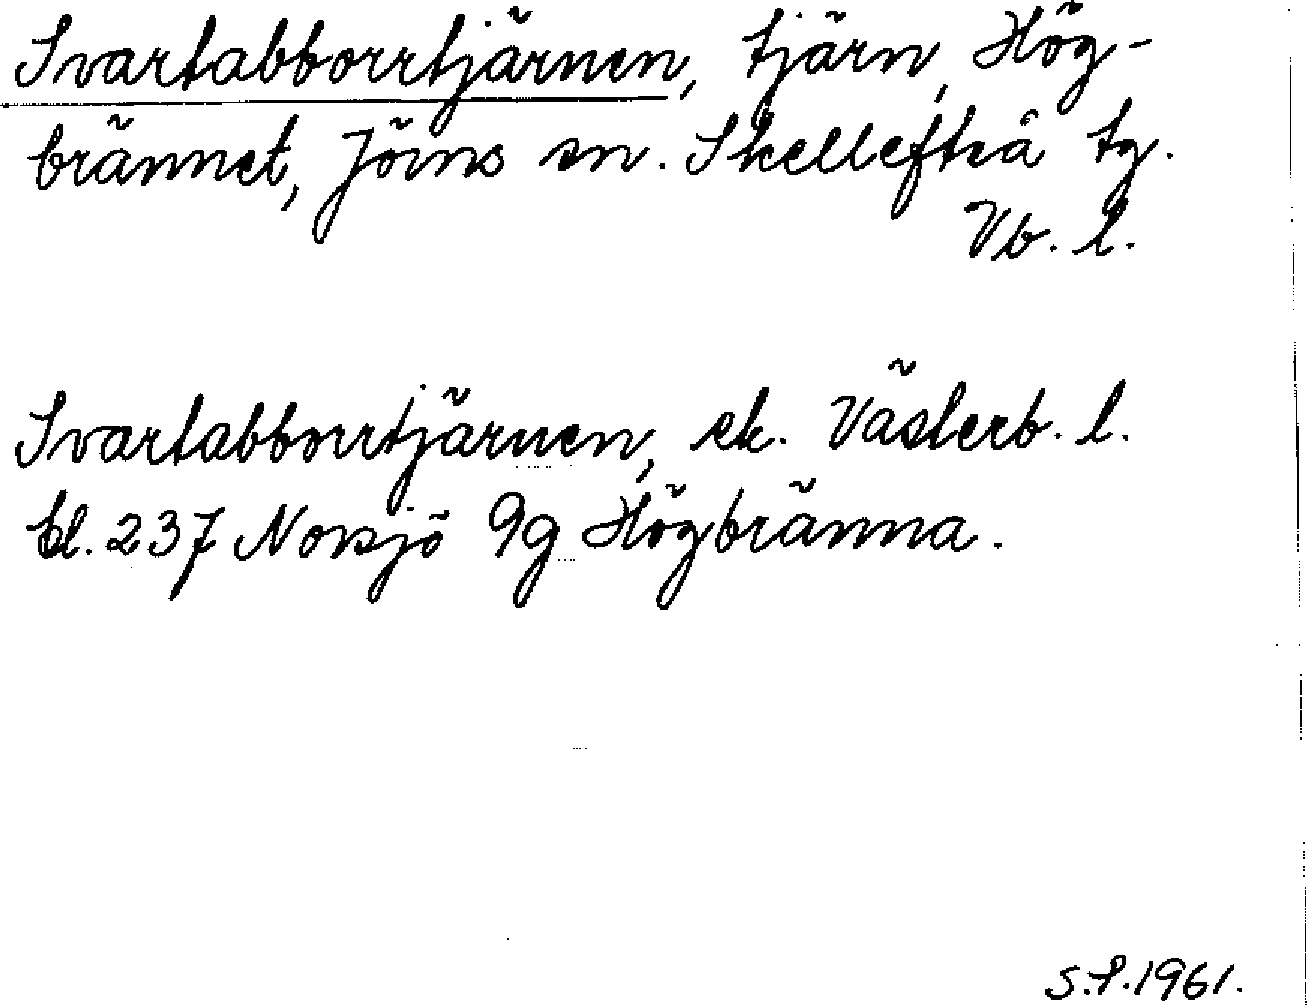 Svartabborrtjärnen, tjärn, Hög-
brännet, Jörns sn. Skellefteå tg.
Vb. l.
Svartabborrtjärnen, ek. Västerb. l.
bl. 237 Norsjö 9g Högbränna.
S.P. 1961.